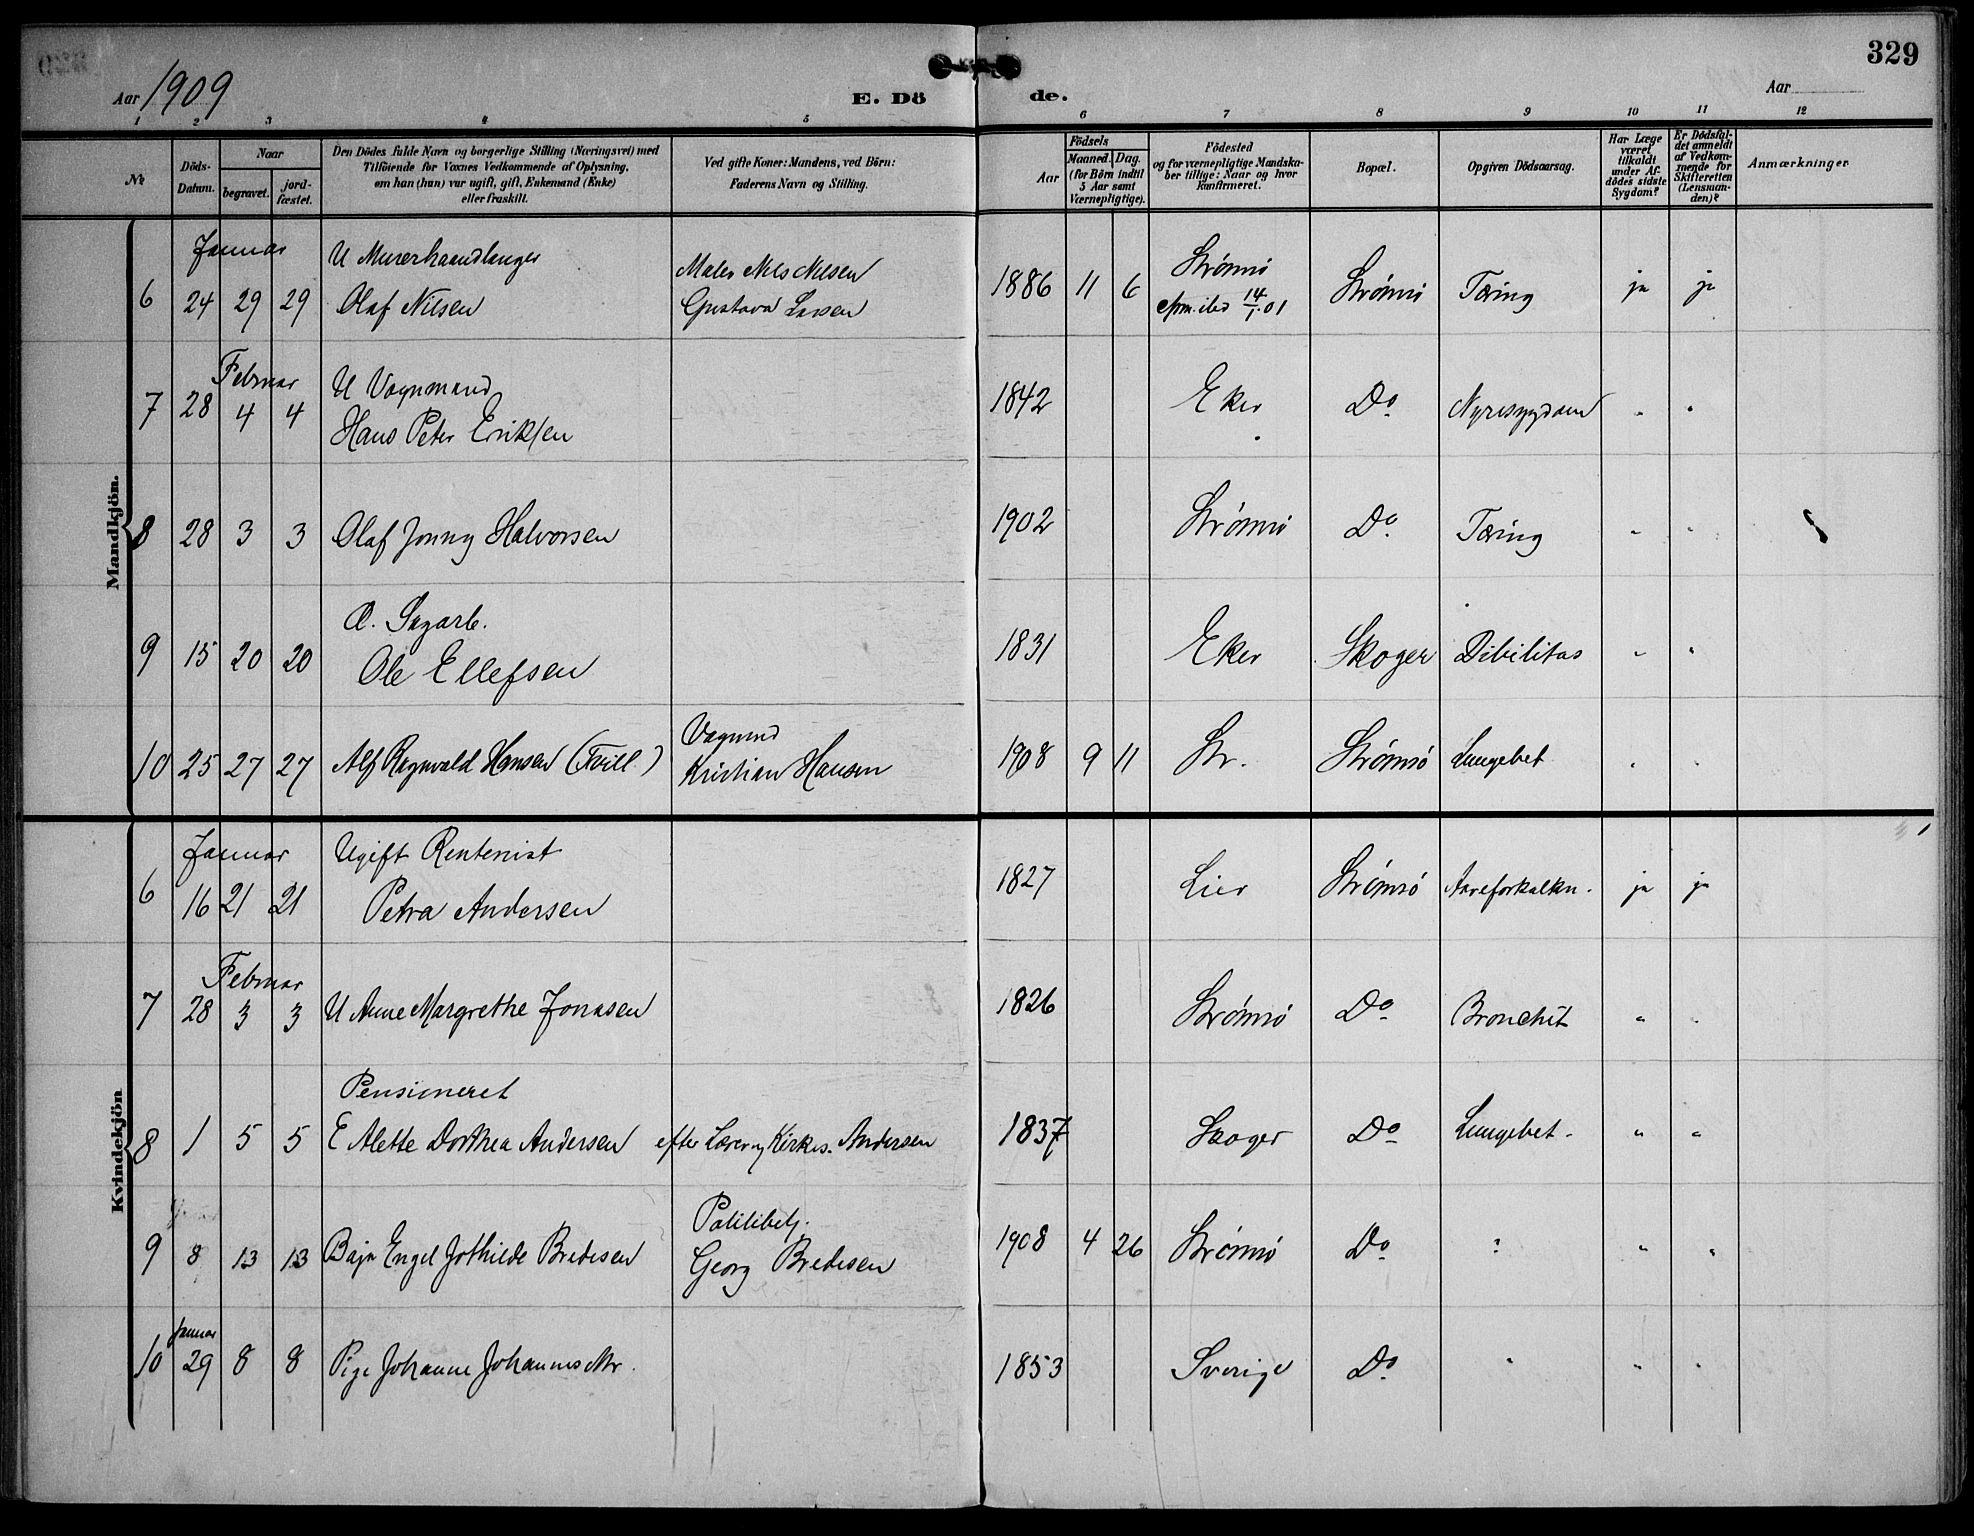 329
Aar 1909
E. Dö de.
Aar
1 2 3 4 5 6 7 8 9 10 11 12
№
Döds-Datum.
Naar
begravet.
jord-fæstet.
Den Dödes fulde Navn og borgerlige Stilling (Næringsvei) med
Tilföiende for Voxnes Vedkommende af Oplysning,
om han (hun) var ugift, gift, Enkemand (Enke)
eller fraskilt.
Ved gifte Koner: Mandens, ved Börn:
Faderens Navn og Stilling.
Födsels
Aar
Maaned. Dag.
(for Börn indtil
5 Aar samt
Værnepligtige).
Födested
og for værnepligtige Mandska-
ber tillige: Naar og hvor
Konfirmeret.
Bopæl.
Opgiven Dödsaarsag.
Har Læge
været
tilkaldt
under Af-
dödes sidste
Sygdom?
Er Dödsfal-
det anmeldt
af Vedkom-
mende for
Skifteretten
(Lensman-
den)?
Anmærkninger
Mandkjön.
Januar U Murerhaandlanger Maler Nils Nilsen Strømsø
6 24 29 29 Olaf Nilsen Gustava Larsen 1886 11 6 ibid 14/1.01 Strømsø Tæring ja ja
Februar U Vognmand
7 28 4 4 Hans Peter Eriksen 1842 Eker Do Nyresygdom " "
8 28 3 3 Olaf Jonny Halvorsen 1902 Strømsø Do Tæring " "
Sagarb.
9 15 20 20 Ole Ellefsen 1831 Eker Skoger Dibilitas " "
Vognmd
10 25 27 27 Alf Ragnvald Hansen (Tvill.) Kristian Hansen 1908 9 11 Str. Strømsø Lungebet " "
Kvindekjön
Januar Ugift Rentenist
6 16 21 21 Petra Andersen 1827 Lier Strømsø Aareforkalkn. ja ja
Februar
7 28 3 3 U Anne Margrethe Jonasen 1826 Strømsø Do Bronchit " "
Pensioneret
8 1 5 5 E Alette Dorthea Andersen efter Lærer og Kirkes. Andersen 1837 Skoger Do Lungebet. " "
Politibetj.
9 8 13 13 Engel Bredesen Georg Bredesen 1908 4 26 Strømsø Do " " "
Januar
10 29 8 8 Pige Johanne Johannesdtr. 1853 Sverige Do " " "